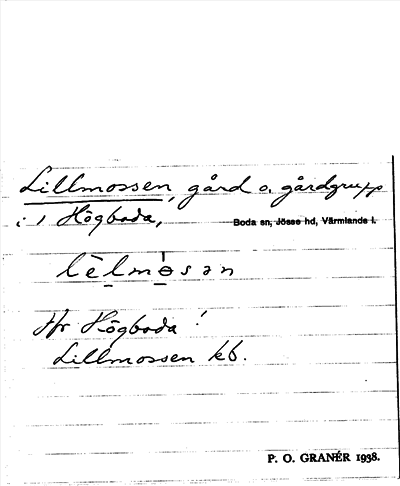 Lillmossen, gård o. gårdgrupp
i 1 Högboda, Boda sn, Jösse hd, Värmlands l.
lèlmo̱sən
Jfr Högboda!
Lillmossen kb.
P. O. GRANÉR 1938.